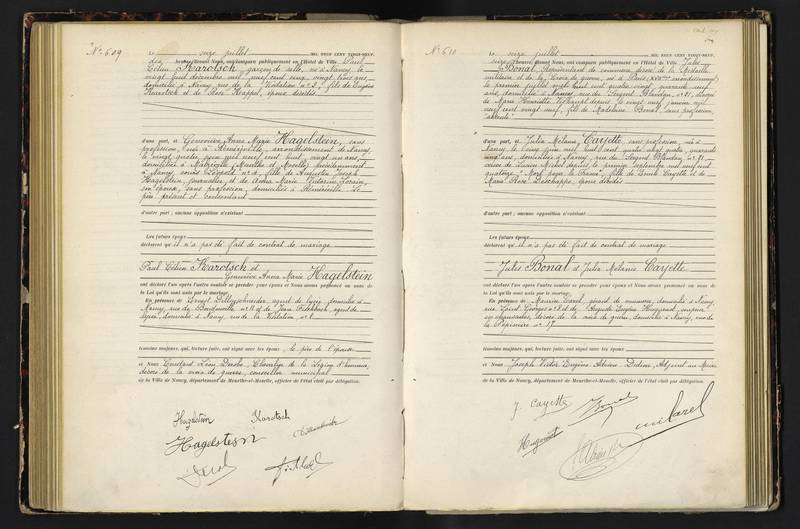 N° 609
Le seize juillet MIL NEUF CENT VINGT-NEUF,
dix heures, devant Nous, ont comparu publiquement en l'Hôtel de Ville Paul
Célien Karotsch, garçon de salle, né à Nancy, le
vingt huit décembre mil neuf cent cinq, vingt trois ans,
domicilié à Nancy, rue de la Visitation n° 8, fils de Eugène
Karotsch et de Rose Happel, époux décédés
d'une part, et Geneviève Anne Marie Hagelstein, sans
profession, née à Blénod, arrondissement de Nancy,
le vingt quatre juin mil neuf cent huit, vingt un ans,
domiciliée à (Meurthe et Moselle) précédemment
à Nancy, cours Léopold n° fille de Augustin Joseph
Hagelstein, et de Anna Marie Victorine Lorain,
son épouse, sans profession, domiciliés à Le
père présent et consentant
d'autre part; aucune opposition n'existant
Les futurs époux
déclarent qu'il n'a pas été fait de contrat de mariage
Paul Célien Karotsch et
Geneviève Anna Marie Hagelstein
ont déclaré l'un après l'autre vouloir se prendre pour époux et Nous avons prononcé au nom de
la Loi qu'ils sont unis par le mariage.
En présence de Ernest agent de lycée, domicilié à
Nancy, rue de n° 11 et de Jean agent de
lycée, domicilié à Nancy, rue de la Visitation n° 8
témoins majeurs, qui, lecture faite, ont signé avec les époux, le père de l'épouse
et Nous Léon Chevalier de la Légion d'honneur,
décoré de la croix de guerre, conseiller municipal
de la Ville de Nancy, département de Meurthe-et-Moselle, officier de l'état civil par délégation.
Hagelstein Karotsch
Hagelstein
N° 610
Le seize juillet MIL NEUF CENT VINGT-NEUF,
seize heures, devant Nous, ont comparu publiquement en l'Hôtel de Ville Jules
Bonal, Représentant de commerce, décoré de la Médaille
militaire et de la Croix de guerre, né à Paris (XVIIme arrondissement)
le premier juillet mil huit cent quatre vingt, quarante neuf
ans, domicilié à Nancy, rue du Sergent Blandan, n° 91, divorcé
de Marie Henriette depuis le vingt neuf janvier mil
neuf cent vingt neuf, fils de Madeleine Bonal, sans profession,
absente
d'une part, et Julia Mélanie Cayette, sans profession, née à
Nancy, le cinq juin mil huit cent quatre vingt quatre, quarante
cinq ans, domiciliée à Nancy, rue du Sergent Blandan, n° 91
veuve de Lucien Michel décédé le premier septembre mil neuf cent
quatorze, "Mort pour la France", fille de Ernest Cayette et de
Maria Rose Deschappe, époux décédés
d'autre part; aucune opposition n'existant
Les futurs époux
déclarent qu'il n'a pas été fait de contrat de mariage
Jules Bonal et Julia Mélanie Cayette
ont déclaré l'un après l'autre vouloir se prendre pour époux et Nous avons prononcé au nom de
la Loi qu'ils sont unis par le mariage.
En présence de Maurice gérant de commerce, domicilié à Nancy
rue Saint Georges n° et de Auguste Eugène
décoré de la croix de guerre, domicilié à Nancy, rue de
la Pépinière n° 17
témoins majeurs, qui, lecture faite, ont signé avec les époux,
et Nous Joseph Victor Eugène Adrien Adjoint au Maire
de la Ville de Nancy, département de Meurthe-et-Moselle, officier de l'état civil par délégation.
J. Cayette Bonal